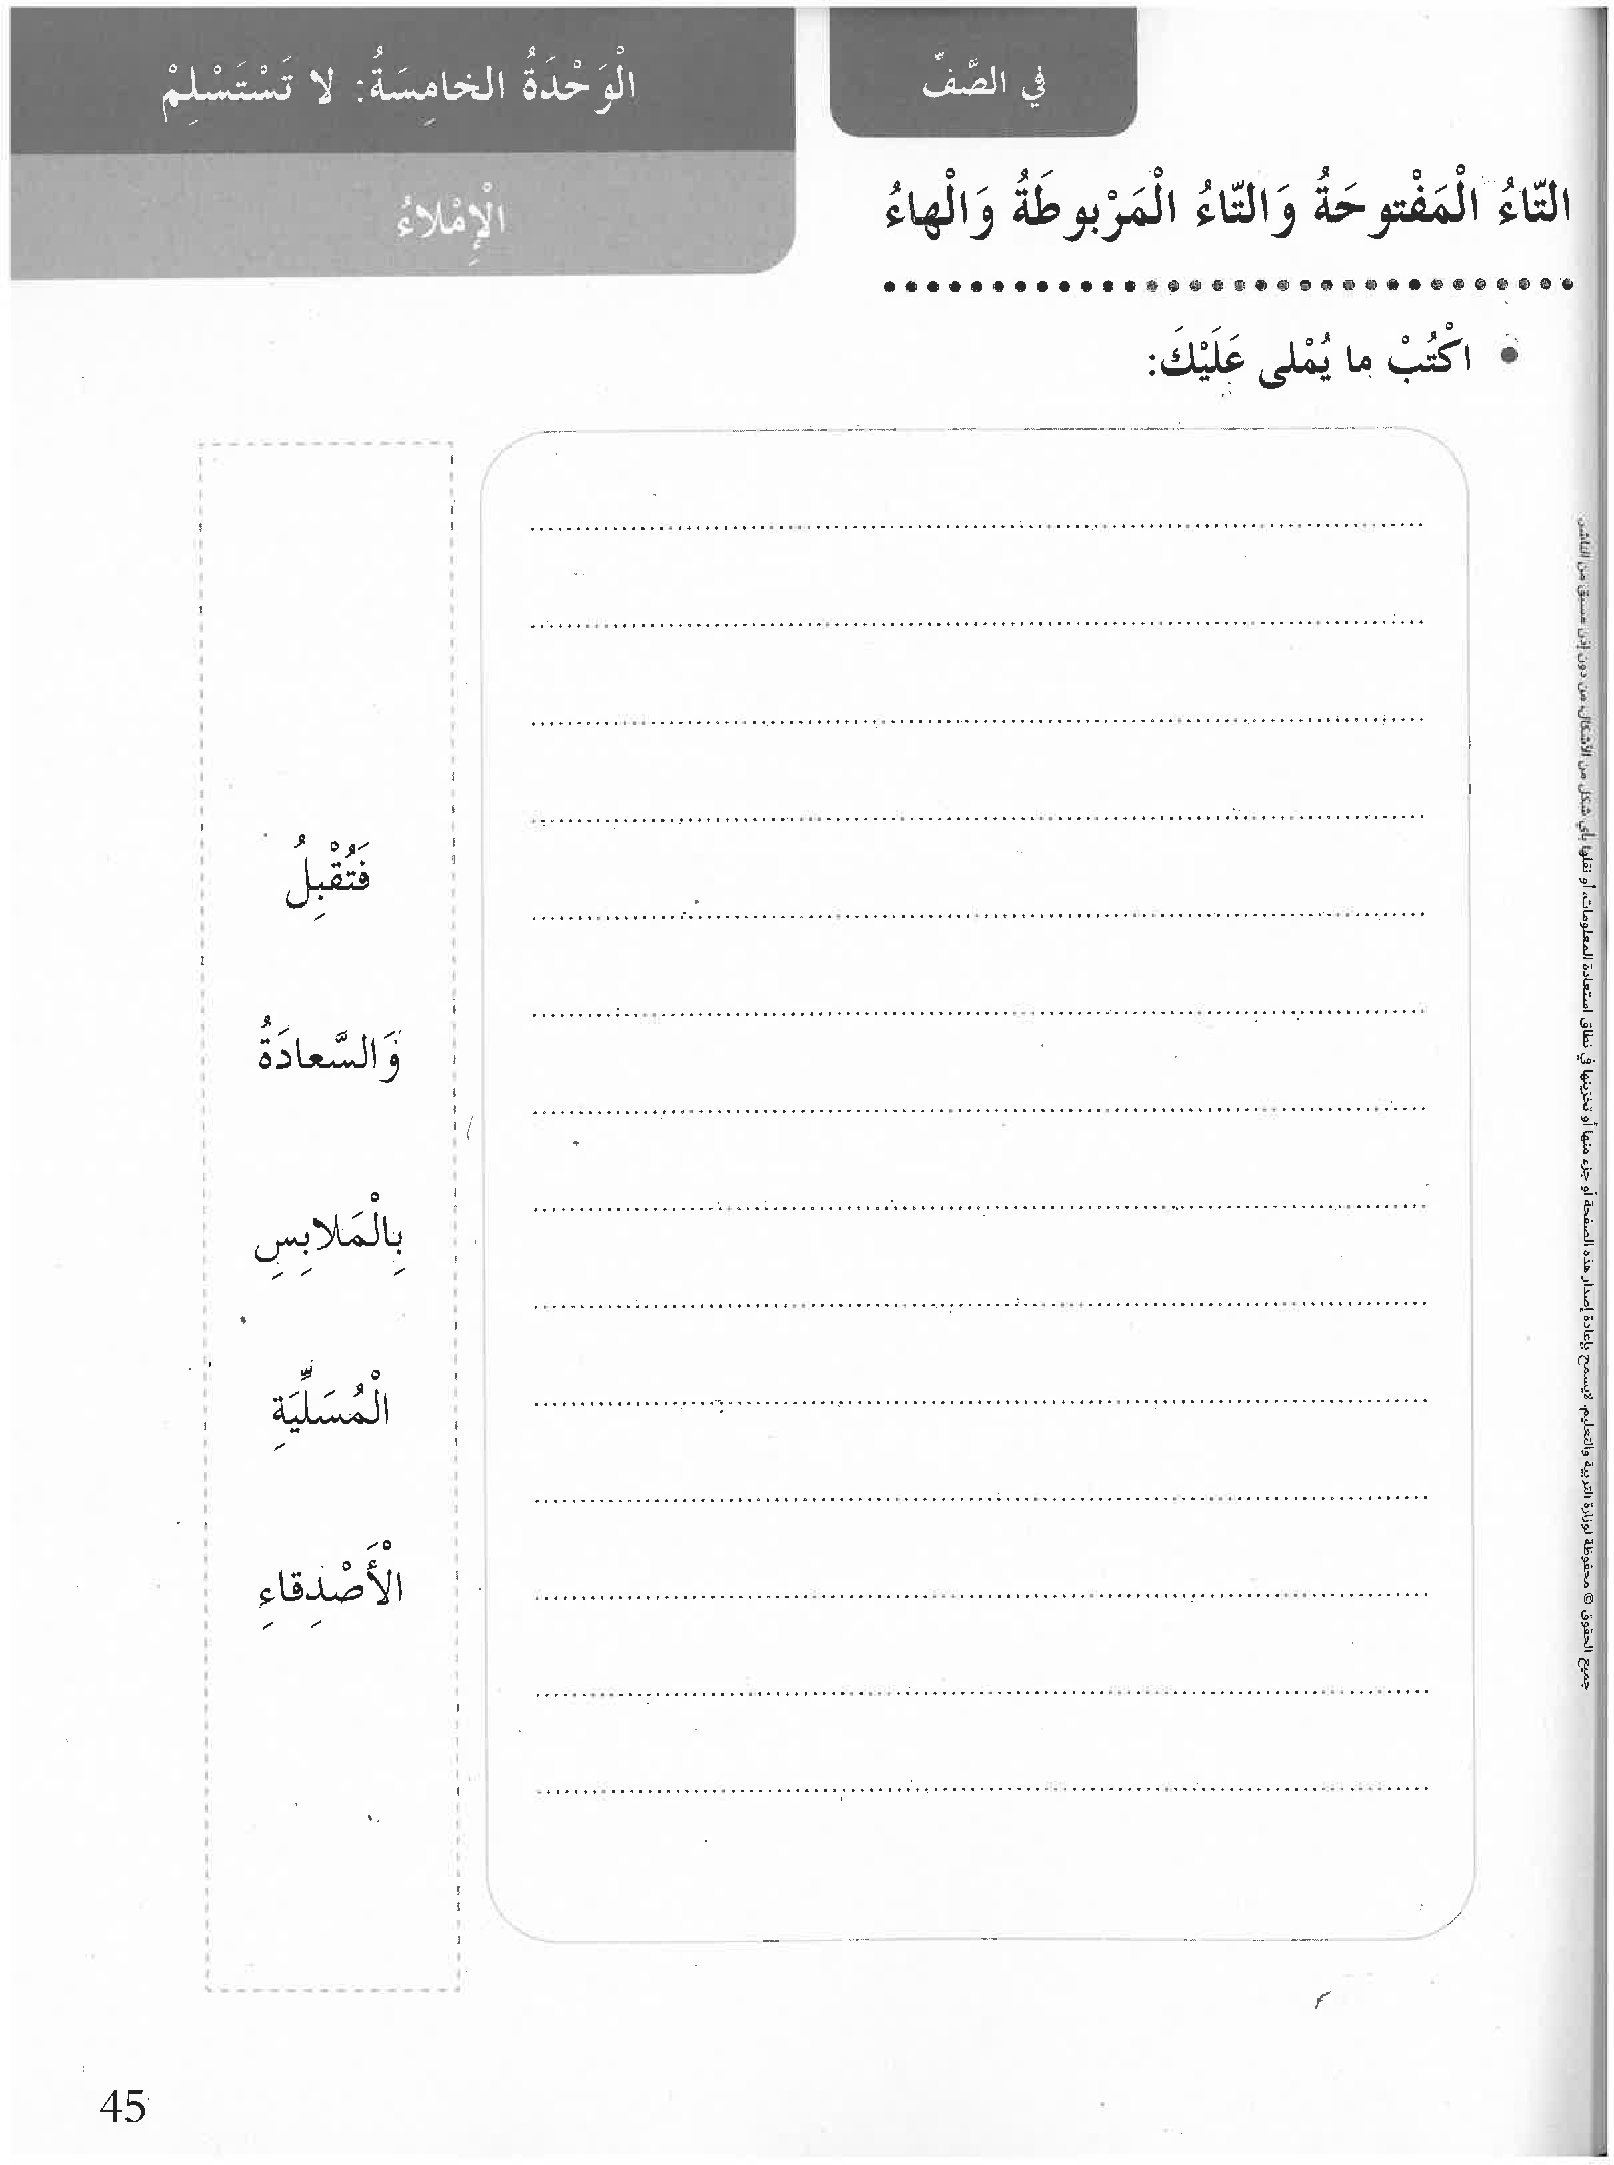 في الصَّفِّ
الْوَحْدَةُ الخامِسَةُ: لا تَسْتَسْلِمْ
الْإِمْلاءُ
التّاءُ الْمَفْتوحَةُ وَالتّاءُ الْمَرْبوطَةُ وَالْهاءُ
• اكْتُبْ ما يُمْلى عَلَيْكَ:
فَتُقْبِلُ
وَالسَّعادَةُ
بِالْمَلابِسِ
الْمُسَلِّيَةِ
الْأَصْدِقاءِ
جميع الحقوق © محفوظة لوزارة التربية والتعليم. لايسمح بإعادة إصدار هذه الصفحة أو جزء منها أو تخزينها في نطاق استعادة المعلومات، أو نقلها بأي شكل من الأشكال، من دون إذن مسبق من الناشر.
45